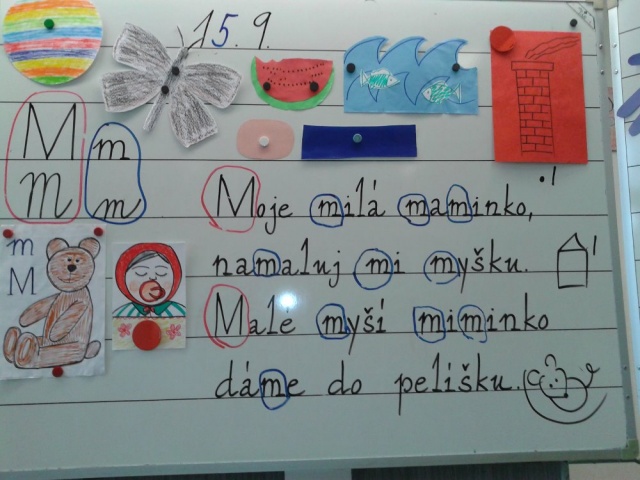 15.9.
M m
M m
m
M
Moje milá maminko,
namaluj mi myšku.
Malé myší miminko
dáme do pelíšku.